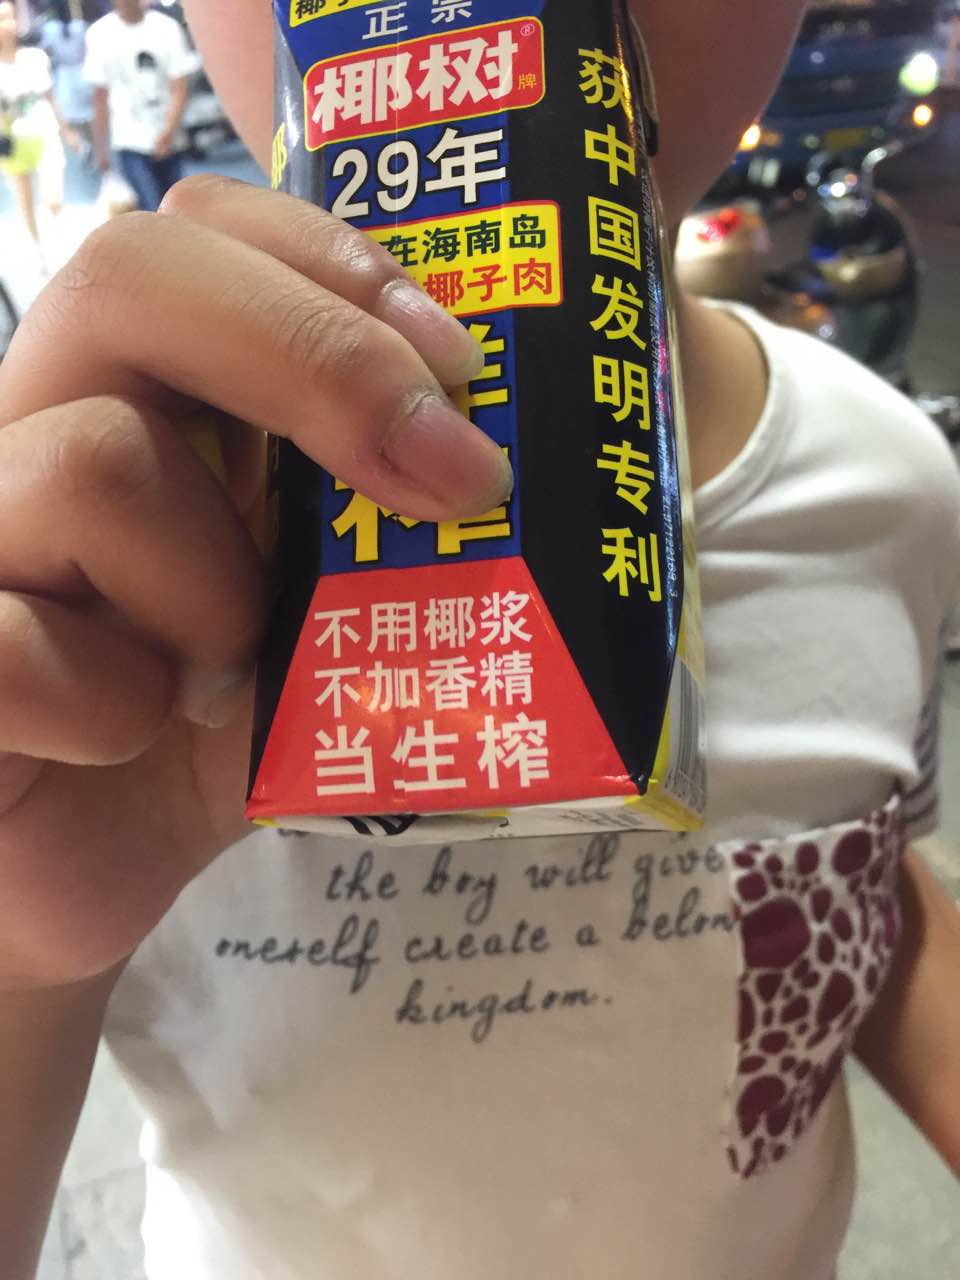 正宗
椰树
牌
29年
在海南岛
椰子肉
榨
不用椰浆
不加香精
当生榨
获中国发明专利
the boy will give
oneself create a belon
kingdom.